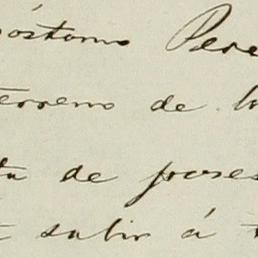 óstomo Pere
terreno de l
ta de poses
salir á t